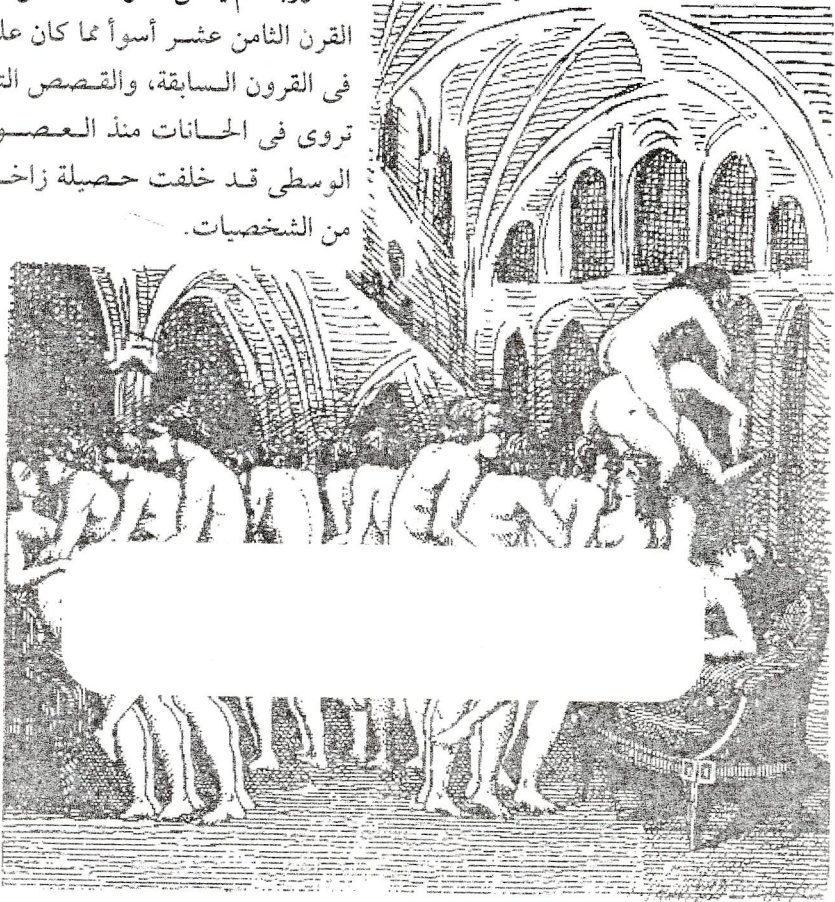 القرن الثامن عشر أسوأ مما كان علـ
فى القرون السابقة، والقصص التـ
تروى فى الحانات منذ العصو
الوسطى قد خلفت حصيلة زاخـ
من الشخصيات.